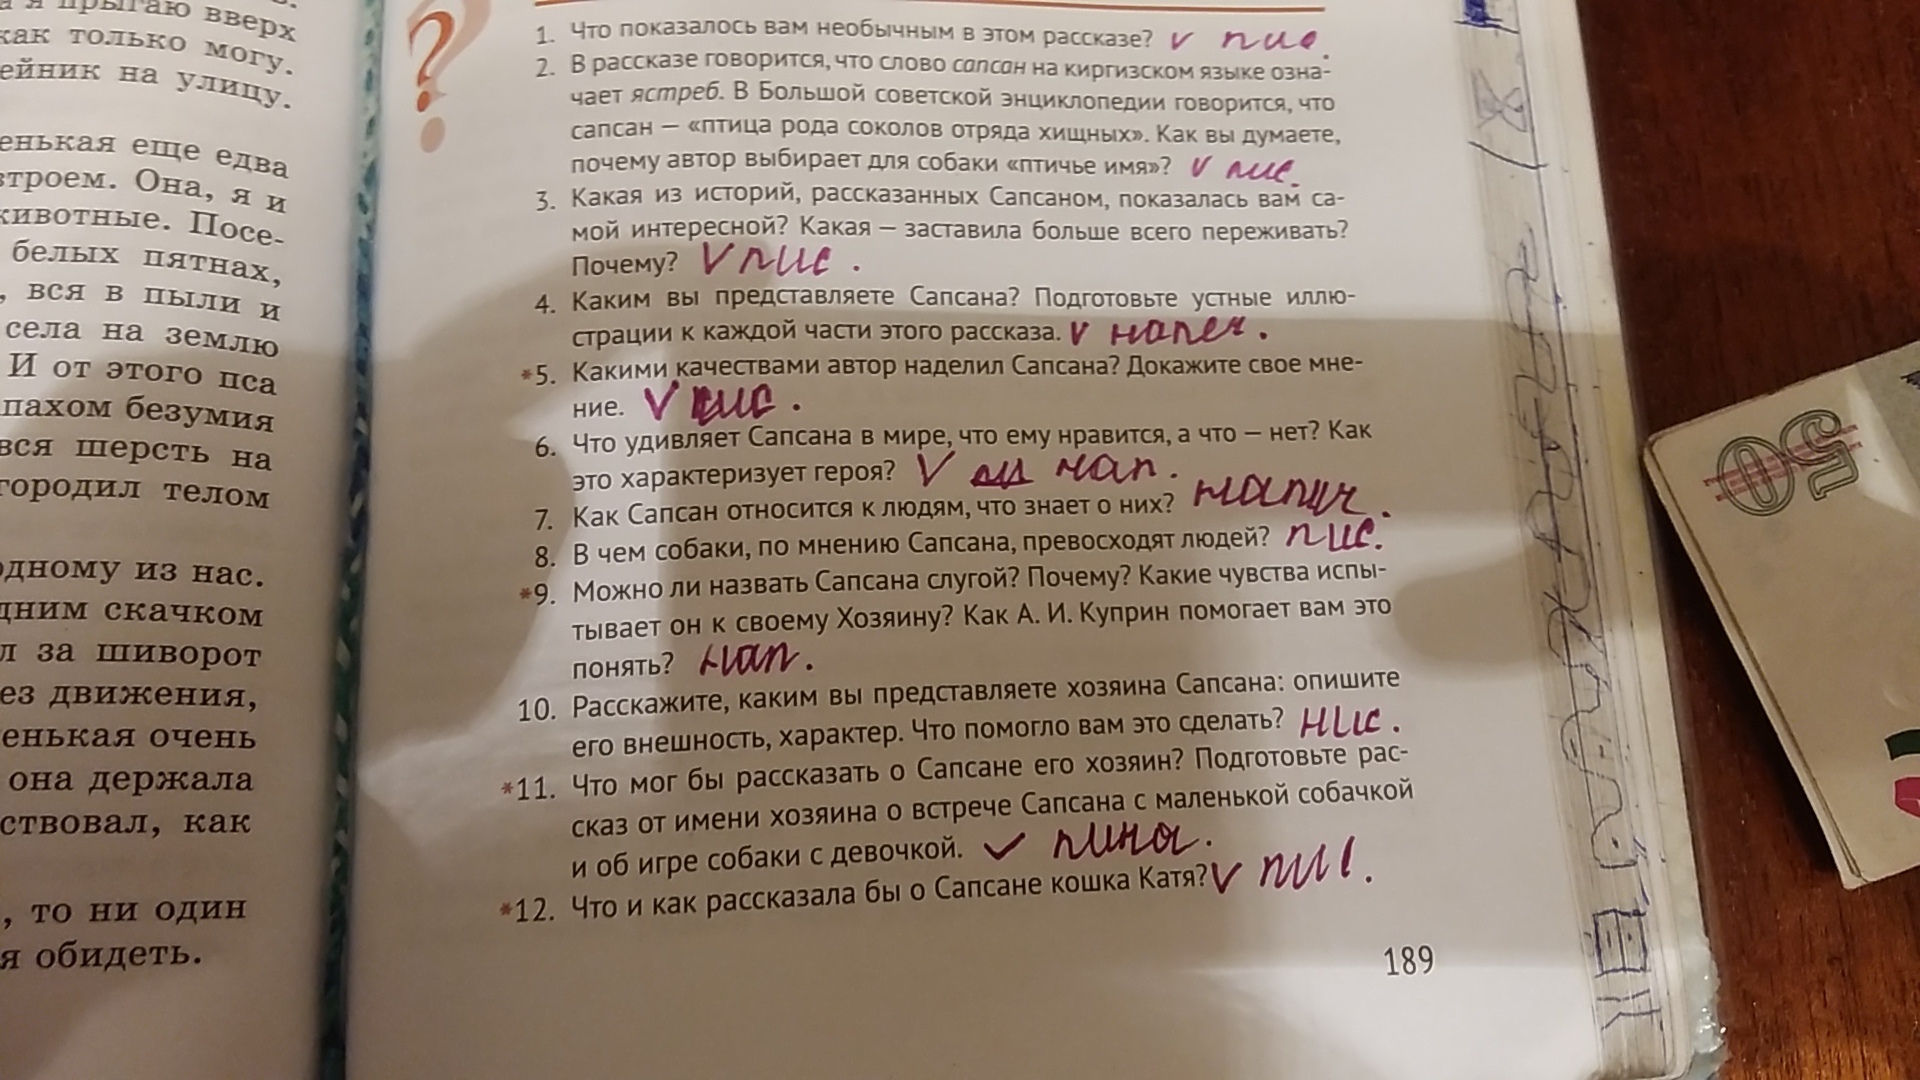 я прыгаю вверх
как только могу.
ейник на улицу.
енькая еще едва
втроем. Она, я и
животные. Посе-
белых пятнах,
, вся в пыли и
села на землю
И от этого пса
пахом безумия
вся шерсть на
городил телом
одному из нас.
дним скачком
л за шиворот
ез движения,
енькая очень
она держала
ствовал, как
, то ни один
я обидеть.
?
1. Что показалось вам необычным в этом рассказе? v пис.
2. В рассказе говорится, что слово сапсан на киргизском языке озна-
чает ястреб. В Большой советской энциклопедии говорится, что
сапсан — «птица рода соколов отряда хищных». Как вы думаете,
почему автор выбирает для собаки «птичье имя»? v пис.
3. Какая из историй, рассказанных Сапсаном, показалась вам са-
мой интересной? Какая — заставила больше всего переживать?
Почему? v пис.
4. Каким вы представляете Сапсана? Подготовьте устные иллю-
страции к каждой части этого рассказа. v
*5. Какими качествами автор наделил Сапсана? Докажите свое мне-
ние. v пис.
6. Что удивляет Сапсана в мире, что ему нравится, а что — нет? Как
это характеризует героя? v нап.
7. Как Сапсан относится к людям, что знает о них?
8. В чем собаки, по мнению Сапсана, превосходят людей? пис.
*9. Можно ли назвать Сапсана слугой? Почему? Какие чувства испы-
тывает он к своему Хозяину? Как А. И. Куприн помогает вам это
понять? нап.
10. Расскажите, каким вы представляете хозяина Сапсана: опишите
его внешность, характер. Что помогло вам это сделать?
*11. Что мог бы рассказать о Сапсане его хозяин? Подготовьте рас-
сказ от имени хозяина о встрече Сапсана с маленькой собачкой
и об игре собаки с девочкой. v
*12. Что и как рассказала бы о Сапсане кошка Катя? v
189
50